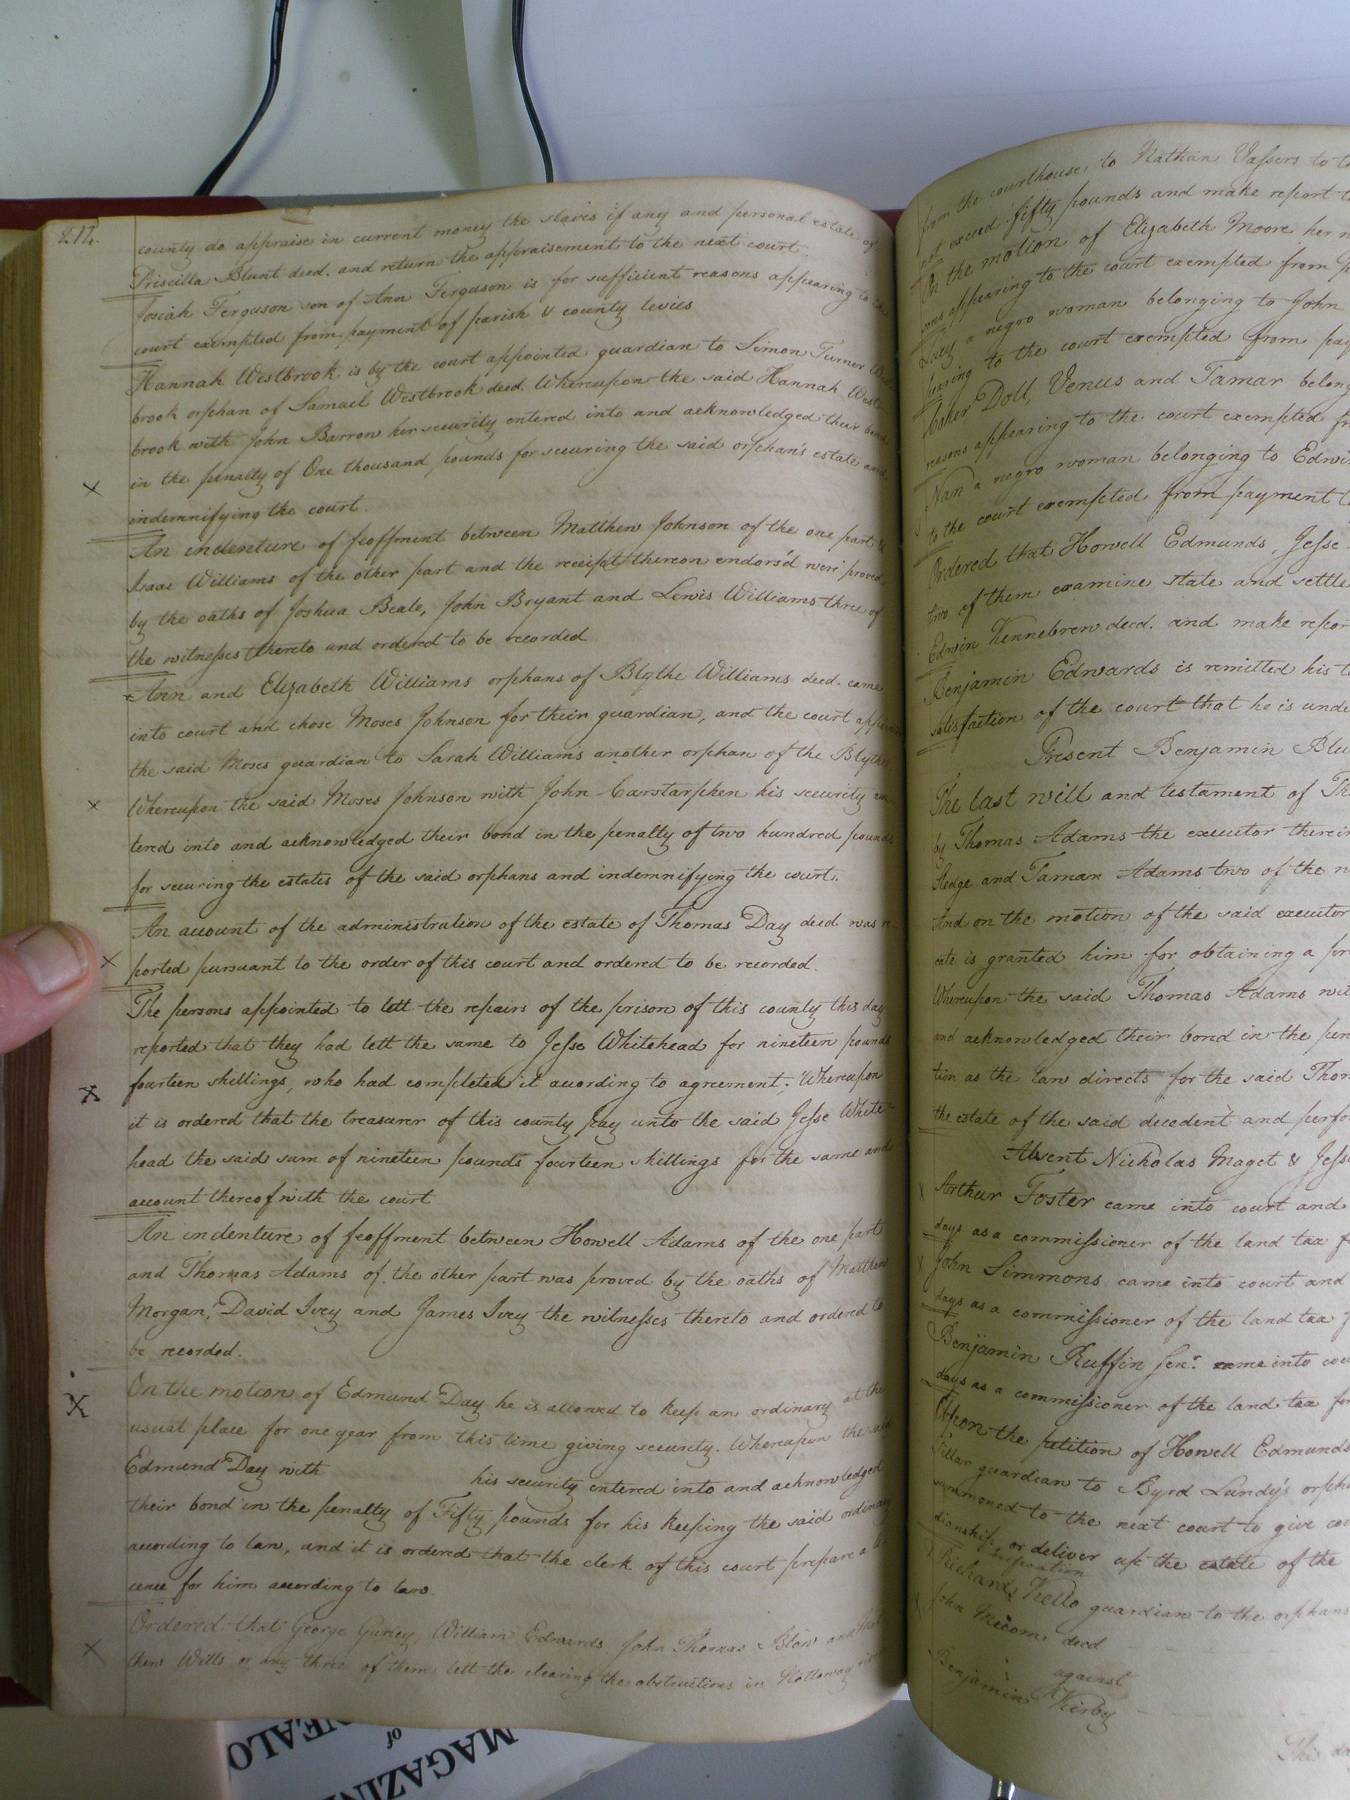 county do appraise in current money the slaves if any and personal estate of
Priscilla Blunt decd. and return the appraisement to the next court.
Josiah Ferguson son of Ann Ferguson is for sufficient reasons appearing to the
court exempted from payment of parish & county levies
Hannah Westbrook is by the court appointed guardian to Simon Turner West
brook orphan of Samuel Westbrook decd Whereupon the said Hannah West
brook with John Barron her security entered into and acknowledged their bond
in the penalty of One thousand pounds for securing the said orphan's estate and
indemnifying the court.
An indenture of feoffment between Matthew Johnson of the one part &
Isaac Williams of the other part and the receipt thereon endors'd were proved
by the oaths of Joshua Beale, John Bryant and Lewis Williams three of
the witnesses thereto and ordered to be recorded
Ann and Elizabeth Williams orphans of Blythe Williams decd. came
into court and chose Moses Johnson for their guardian, and the court
the said Moses guardian to Sarah Williams another orphan of the Blythe
Whereupon the said Moses Johnson with John Carstarphen his security en
tered into and acknowledged their bond in the penalty of two hundred pounds
for securing the estates of the said orphans and indemnifying the court.
An account of the administration of the estate of Thomas Day decd was re
ported pursuant to the order of this court and ordered to be recorded.
The persons appointed to lett the repairs of the prison of this county this day
reported that they had lett the same to Jesse Whitehead for nineteen pounds
fourteen shillings, who had completed it according to agreement; Whereupon
it is ordered that the treasurer of this county pay unto the said Jesse White
head the said sum of nineteen pounds fourteen shillings for the same and
account thereof with the court
An indenture of feoffment between Howell Adams of the one part
and Thomas Adams of the other part was proved by the oaths of Matthew
Morgan, David Ivey and James Ivey the witnesses thereto and ordered to
be recorded.
On the motion of Edmund Day he is allowed to keep an ordinary at the
usual place for one year from this time giving security. Whereupon the said
Edmund Day with his security entered into and acknowledged
their bond in the penalty of Fifty pounds for his keeping the said ordinary
according to law, and it is ordered that the clerk of this court prepare a li
cence for him according to law.
Ordered that George Gurley, William Edwards John Thomas Blow and
thew Wills or any three of them lett the clearing the obstructions in Nottoway
from the courthouse to Nathan Vassers to
not exceed fifty pounds and make report
On the motion of Elizabeth Moore her
sons appearing to the court exempted from
Lucy a negro woman belonging to John
pearing to the court exempted from pay
Doll, Venus and Tamar belong
reasons appearing to the court exempted
Nan a negro woman belonging to Edwi
to the court exempted from payment
Ordered that Howell Edmunds, Jesse
two of them examine state and settle
Edwin Kennebrew decd. and make repor
Benjamin Edwards is remitted his
satisfaction of the court that he is unde
Present Benjamin Blu
The last will and testament of Th
by Thomas Adams the executor therein
Sledge and Tamar Adams two of the
And on the motion of the said executor
cate is granted him for obtaining a
Whereupon the said Thomas Adams
and acknowledged their bond in the pen
tion as the law directs for the said Tho
the estate of the said decedent and perfo
Absent Nicholas Maget & Jesse
Arthur Foster came into court and
days as a commissioner of the land tax
John Simmons came into court and
days as a commissioner of the land tax
Benjamin Ruffin Senr. came into cou
days as a commissioner of the land tax for
Upon the petition of Howell Edmunds
guardian to Byrd Lundy's orph
summoned to the next court to give
dianship or deliver up the estate of the
Richard Kello guardian to the orphans
John decd
against
Benjamin Kirby
This
MAGAZIN
of
NEALO